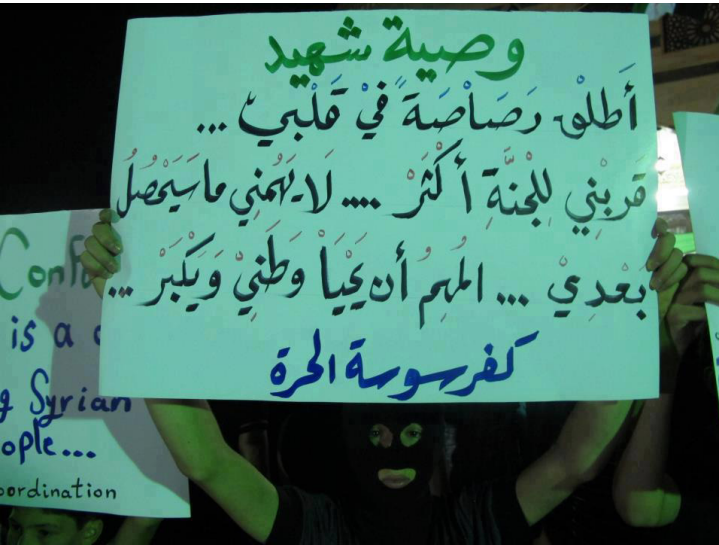 وصية شهيد
أَطلق رَصَاصَةً فيْ قَلْبيْ ...
قَربْنِي لِلجْنَّةِ أكْثَرْ .... لَا يَهُمنِي مَا سَيَحْصُلُ
بَعْدِيْ ... المُهِمُ أن يَحْيَاْ وَطَنِيْ وَيَكْبَرْ ...
كفرسوسة الحرة
is a
Syrian
ople...
oordination